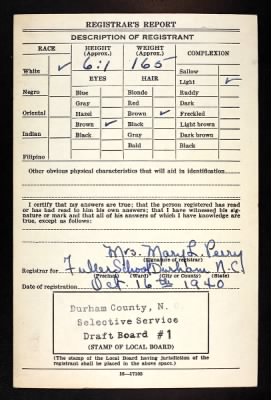 REGISTRAR'S REPORT
DESCRIPTION OF REGISTRANT
RACE HEIGHT (Approx.) WEIGHT (Approx.) COMPLEXION
White ✓ 6:1 165 Sallow
EYES HAIR Light ✓
Negro Blue Blonde Ruddy
Gray Red Dark
Oriental Hazel Brown ✓ Freckled
Brown ✓ Black Light brown
Indian Black Gray Dark brown
Bald Black
Filipino
Other obvious physical characteristics that will aid in identification
I certify that my answers are true; that the person registered has read
or has had read to him his own answers; that I have witnessed his sig-
nature or mark and that all of his answers of which I have knowledge are
true, except as follows:
Mrs. Mary L. Perry
(Signature of registrar)
Registrar for Fuller School Durham N.C.
(Precinct) (Ward) (City or County) (State)
Date of registration Oct. 16th 1940
Durham County, N.
Selective Service
Draft Board #1
(STAMP OF LOCAL BOARD)
(The stamp of the Local Board having jurisdiction of the
registrant shall be placed in the above space.)
16—17105